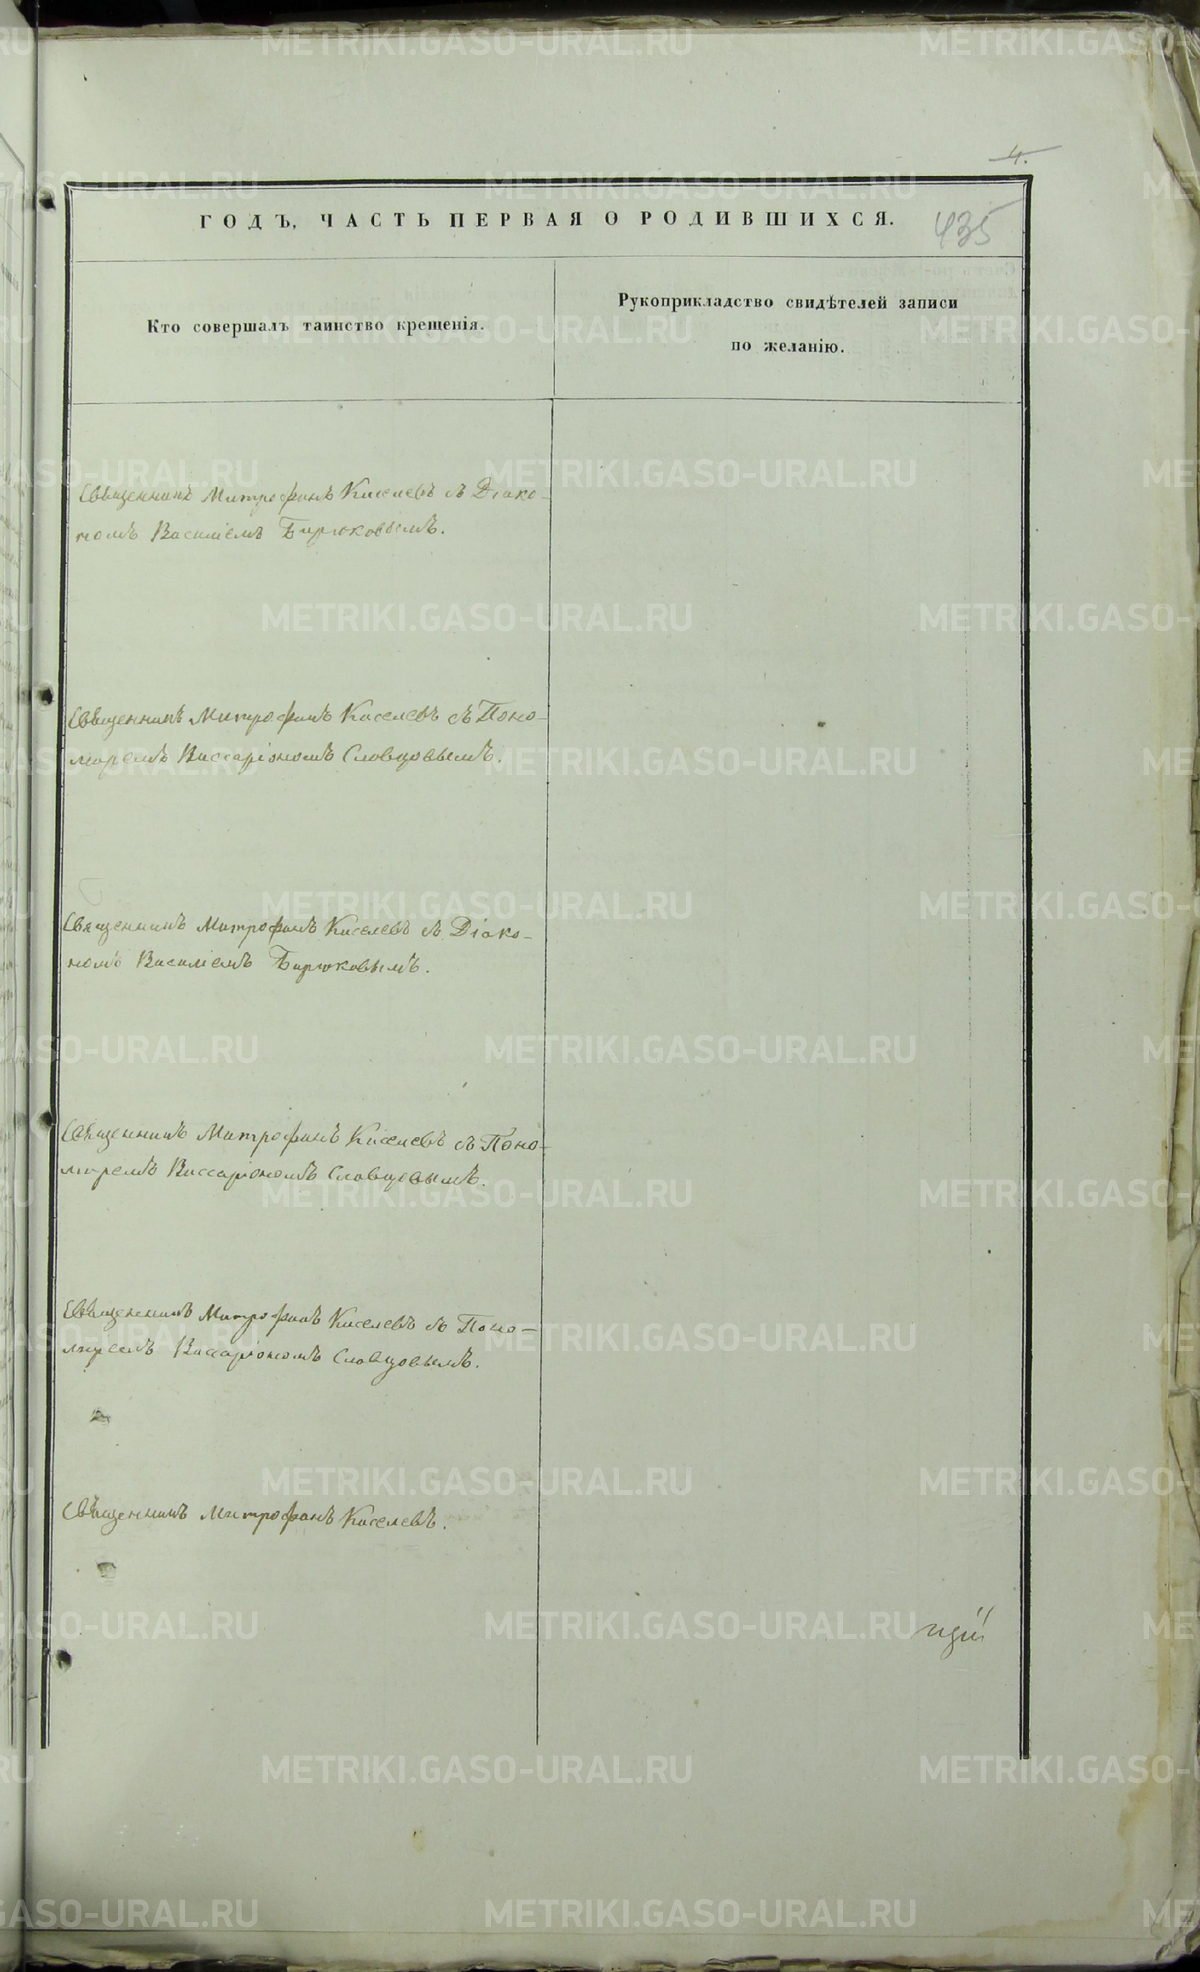 4.
ГОДЪ, ЧАСТЬ ПЕРВАЯ О РОДИВШИХСЯ.
435
Кто совершалъ таинство крещенія.
Рукоприкладство свидѣтелей записи
по желанію.
Священникъ Митрофанъ Киселевъ съ Діако-
номъ Василіемъ Бирюковымъ.
Священникъ Митрофанъ Киселевъ съ Поно-
маремъ Виссаріономъ Словцовымъ.
Священникъ Митрофанъ Киселевъ съ Діако-
номъ Василіемъ Бирюковымъ.
Священникъ Митрофанъ Киселевъ съ Поно-
маремъ Виссаріономъ Словцовымъ.
Священникъ Митрофанъ Киселевъ съ Поно-
маремъ Виссаріономъ Словцовымъ.
Священникъ Митрофанъ Киселевъ.
METRIKI.GASO-URAL.RU